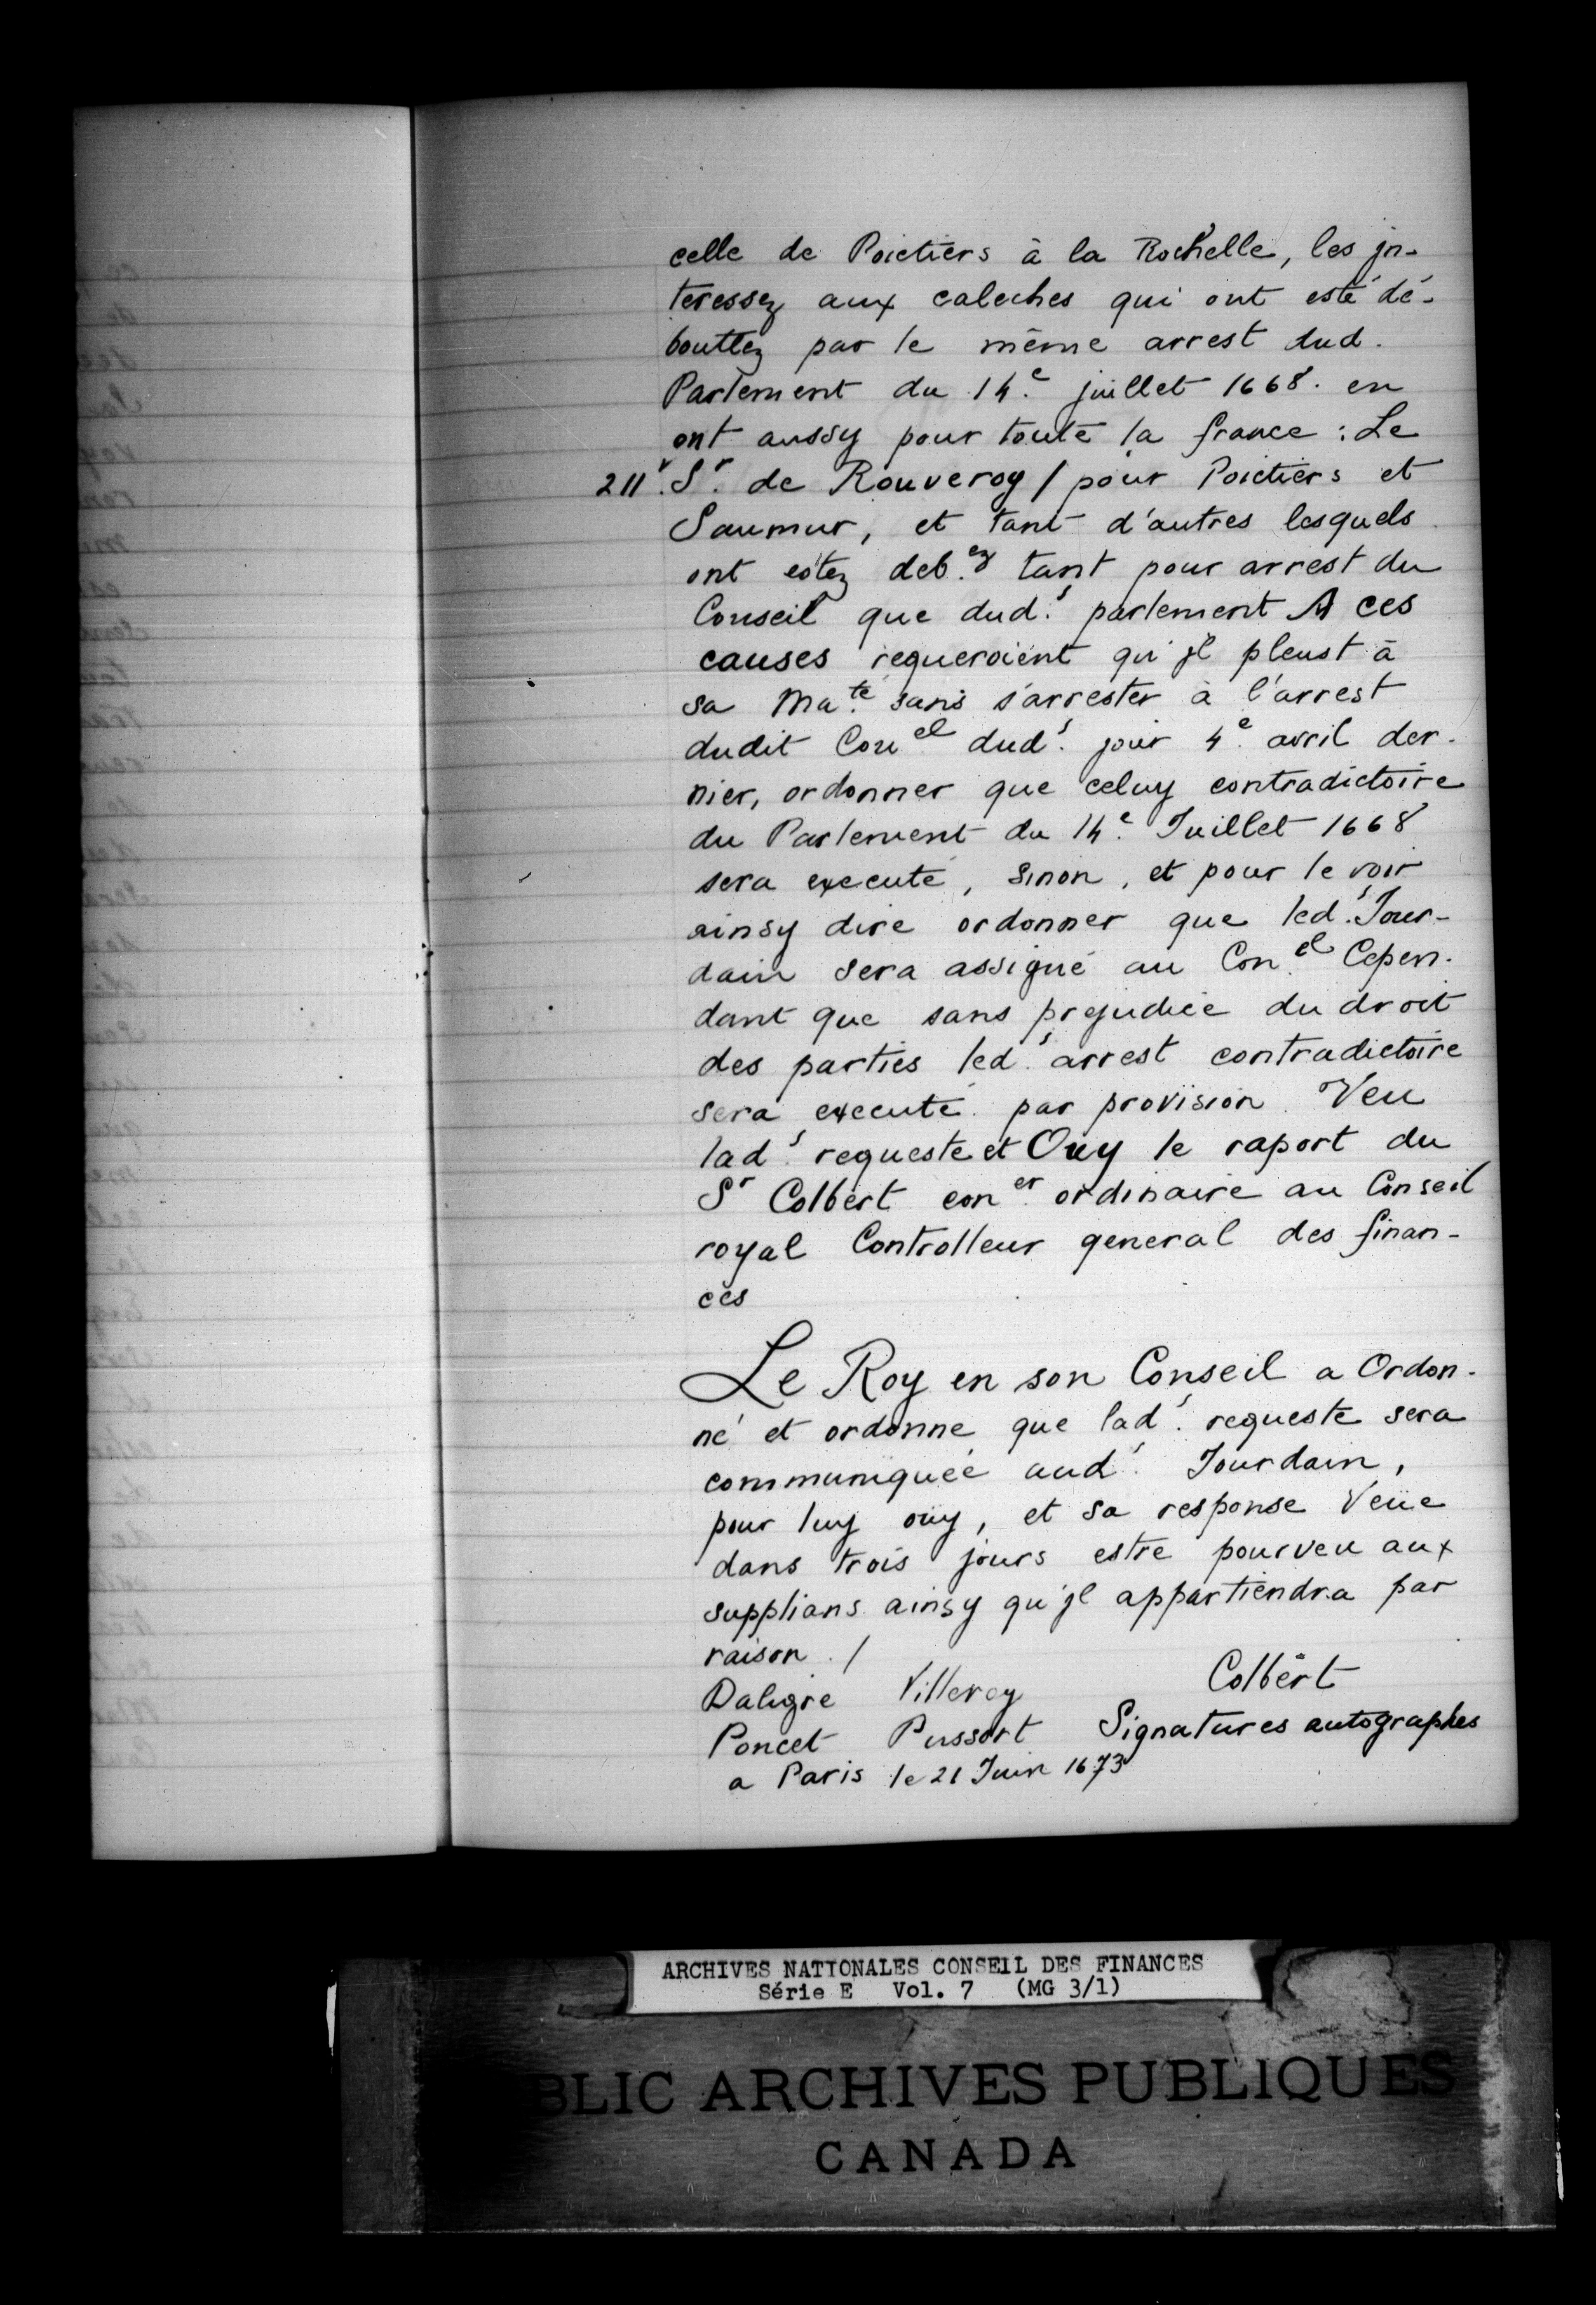 celle de Poictiers à la Rochelle, les jn-
teressez aux caleches qui ont esté dé-
bouttez par le même arrest dud.
Parlement du 14.e juillet 1668. en
ont aussy pour toute la france : Le
211v. Sr. de Rouveroy / pour Poictiers et
Saumur, et tant d'autres lesquels
ont estez deb.ez tant pour arrest du
Conseil que dud.s parlement A ces
causes requeroient qu'jl pleust à
sa Ma.te sans s'arrester à l'arrest
dudit Conel dud.s jour 4.e avril der-
nier, ordonner que celuy contradictoire
du Parlement du 14.e Juillet 1668
sera executé, sinon, et pour le voir
ainsy dire ordonner que led.s Jour-
dain sera assigné au Con.el Cepen-
dant que sans prejudice du droit
des parties led.s arrest contradictoire
sera executé par provision. Veu
lad.s requeste et Ouy le raport du
Sr Colbert con.er ordinaire au Conseil
royal Controlleur general des finan-
ces
Le Roy en son Conseil a Ordon-
né et ordonne que lad.s requeste sera
communiquée aud.s Jourdain,
pour luy oüy, et sa response Veüe
dans trois jours estre pourveu aux
supplians ainsy qu'jl appartiendra par
raison ./
Daligre Villeroy Colbert
Poncet Pussort Signatures autographes
a Paris le 21 Juin 1673
ARCHIVES NATIONALES CONSEIL DES FINANCES
Série E Vol. 7 (MG 3/1)
BLIC ARCHIVES PUBLIQUES
CANADA